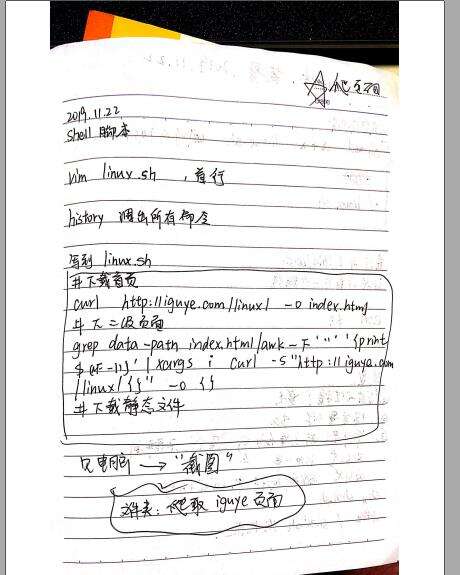 爬页面
2019.11.22
shell 脚本
vim linux.sh ,首行
history 调出所有命令
写到 linux.sh
#下载首页
curl http://iguye.com/linux/ -o index.html
#下二级页面
grep data-path index.html/awk -F '"' '{print
$(NF-1)}' | xargs i curl -s "http://iguye.com
/linux/{}" -o {}
#下载静态文件
见电脑 → "截图"
文件夹:爬取 iguye 页面